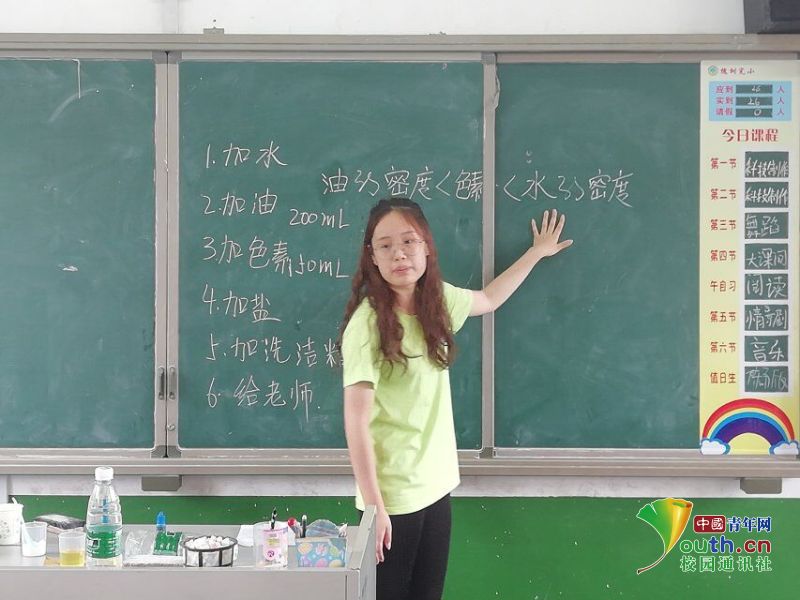 1.加水
2.加油 200mL
3加色素 50mL
4.加盐
5.加洗洁精
6.给老师.
油的密度<色素<水的密度
槐树完小
应到 26 人
实到 26 人
请假 0 人
今日课程
第一节 科技制作
第二节 科技制作
第三节 舞蹈
第四节 大课间
午自习 阅读
第五节 情景剧
第六节 音乐
值日生
中国青年网
Youth.cn
校园通讯社